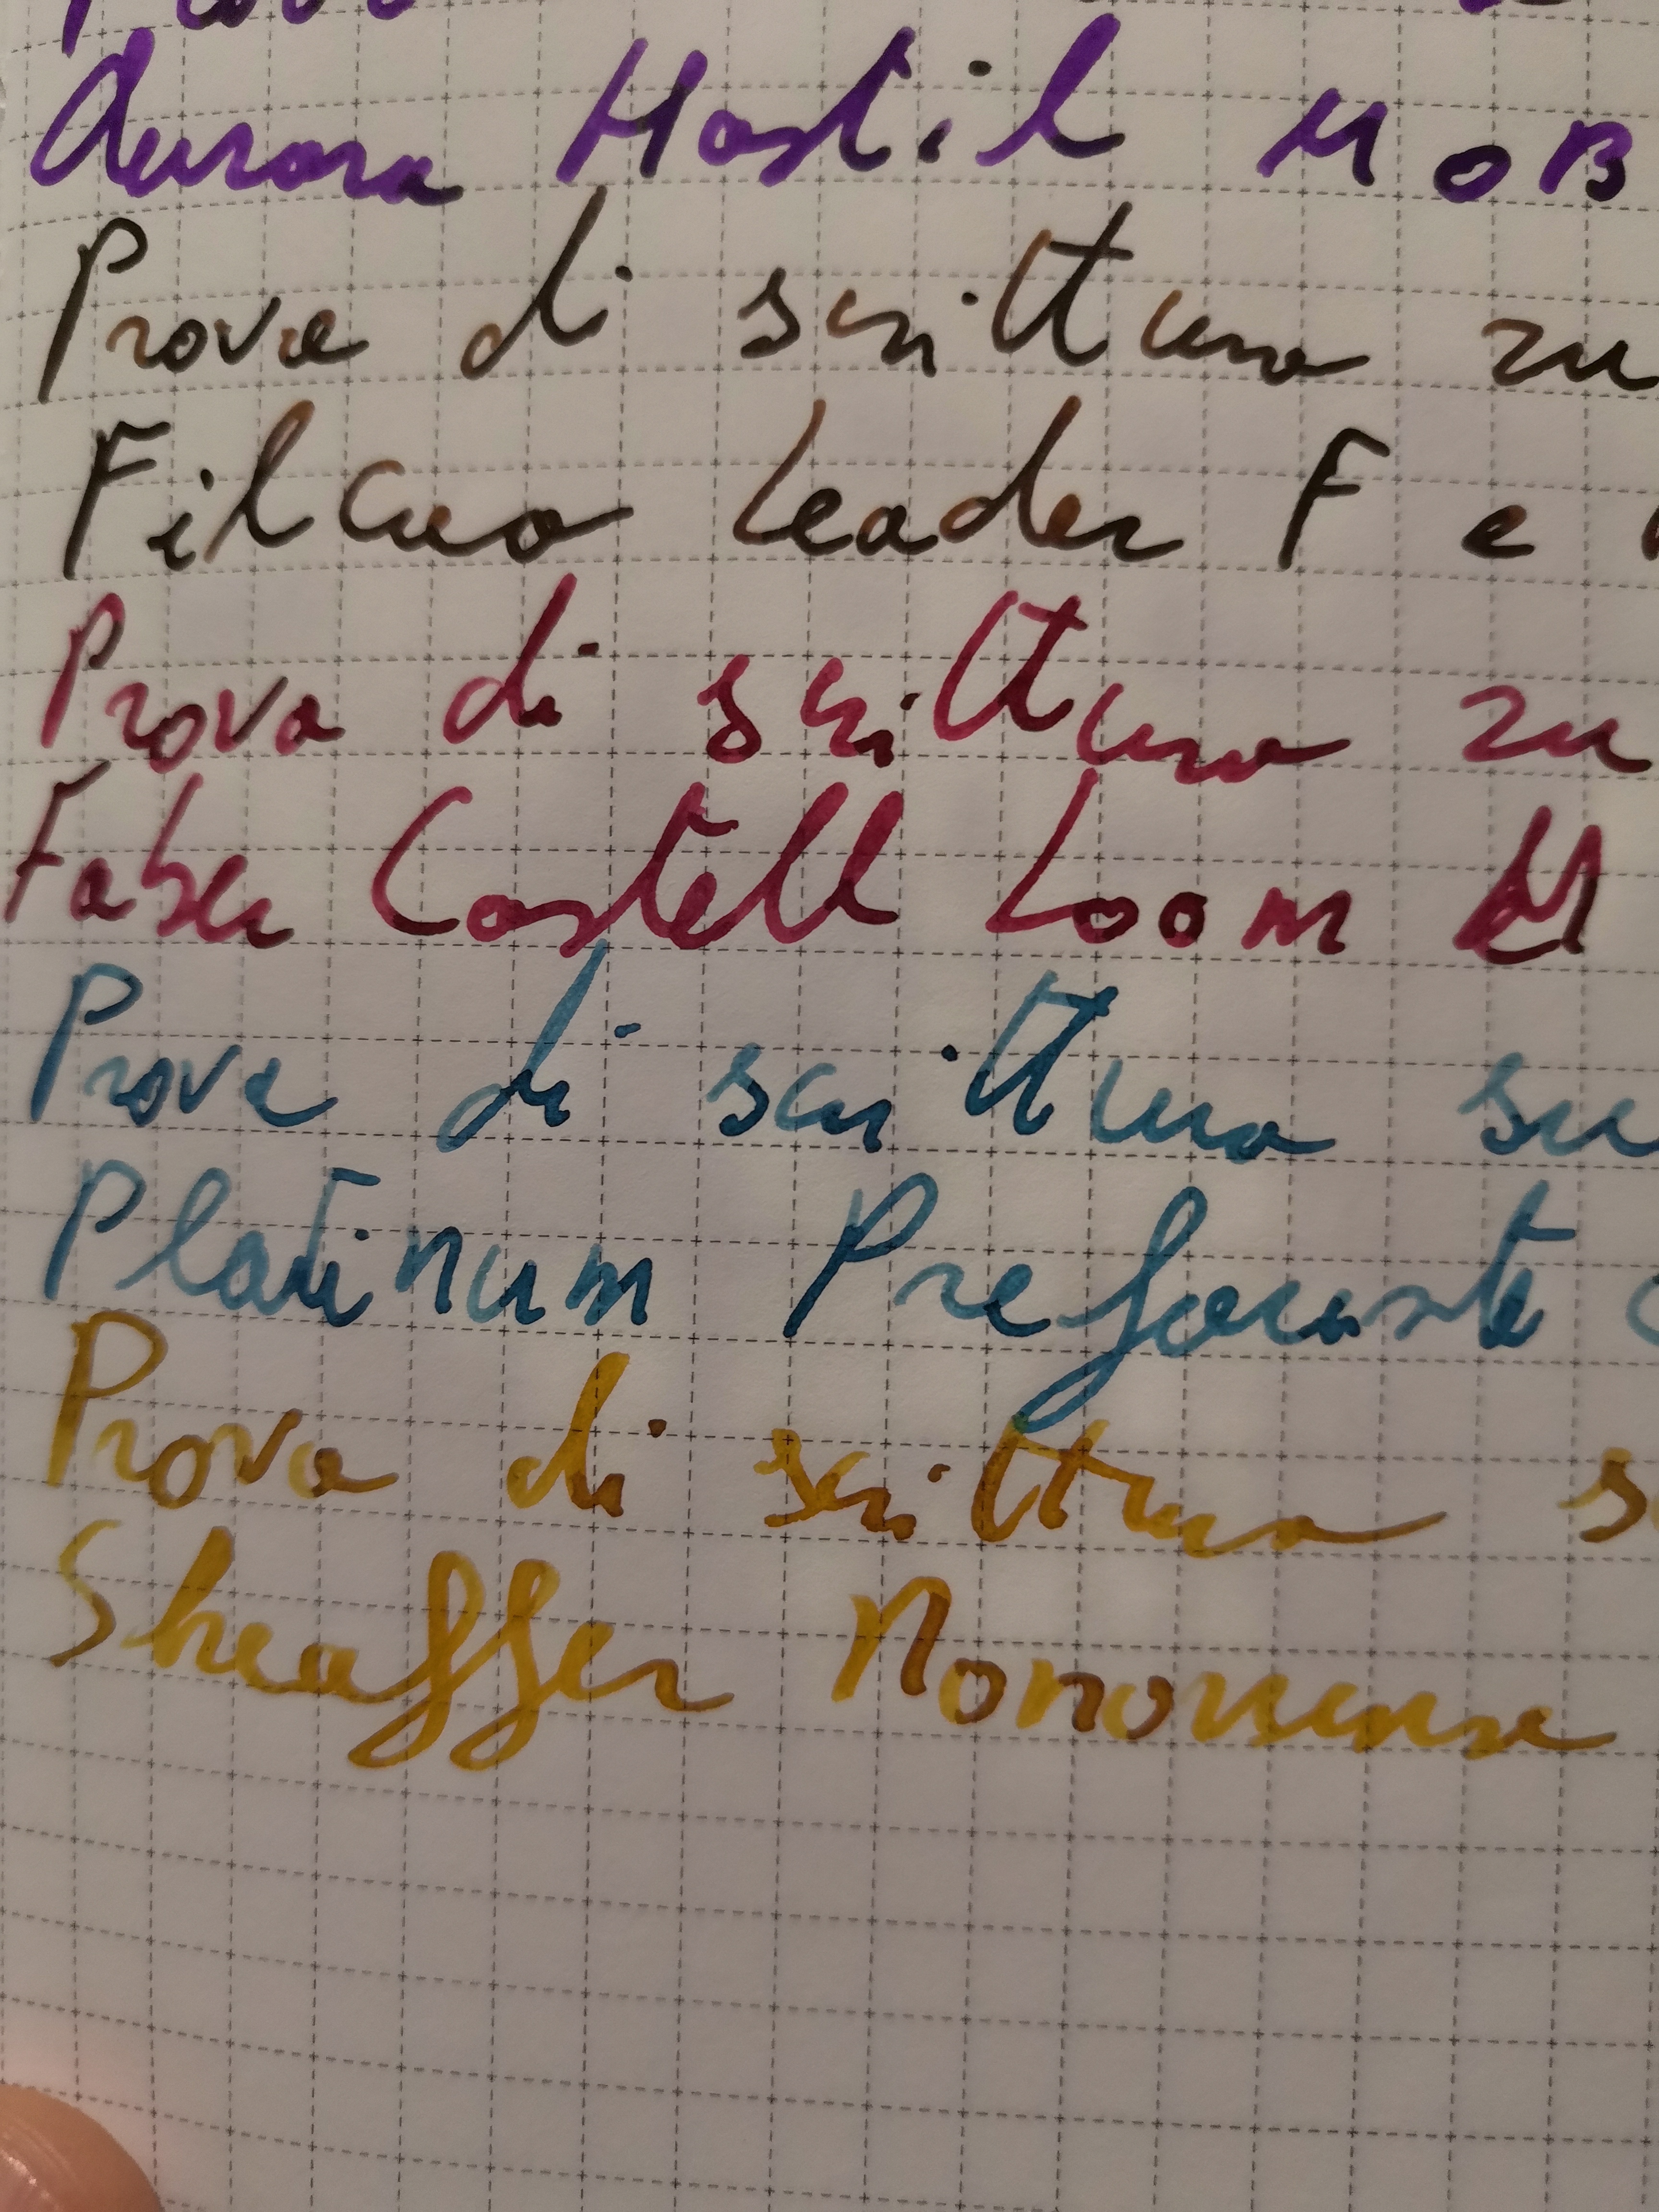 Aurora Hastil M o B
Prova di scrittura su
Filcao Leader F e
Prova di scrittura su
Faber Castell Loom M
Prova di scrittura su
Platinum Prefounte
Prova di scrittura
Sheaffer Nononsense